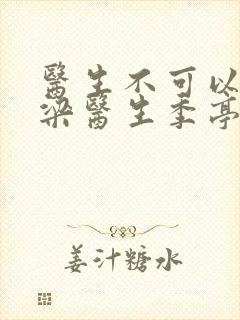 醫生不可以
梁醫生季亭
姜汁糖水